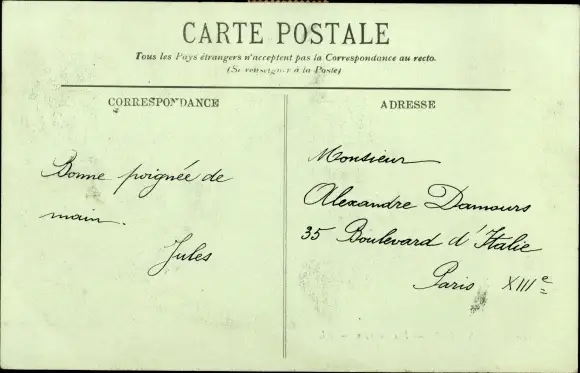 CARTE POSTALE
Tous les Pays étrangers n'acceptent pas la Correspondance au recto.
(Se renseigner à la Poste)
CORRESPONDANCE
Bonne poignée de
main.
Jules
ADRESSE
Monsieur
Alexandre Damours
35 Boulevard d'Italie
Paris XIIIe